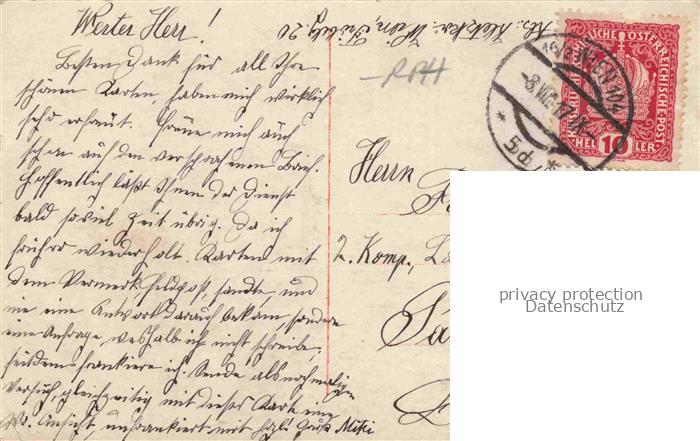 Werter Herr!
Besten Dank für all Ihre
schönen Karten haben mich wirklich
sehr erfreut. Freue mich auch
schon auf den versprochenen Brief.
Hoffentlich läßt Ihnen der Dienst
bald soviel Zeit übrig. Da ich
früher wiederholt Karten mit
dem Vermerk Feldpost, sandte, und
nie eine Antwort darauf bekam, sondern
eine Anfrage, weshalb ich nicht schreibe,
seitdem frankiere ich. Sende also nochmaligen
Versuch, gleichzeitig mit dieser Karte eine
Wr. Ansicht unfrankiert mit hzl. Gruß Mitzi
Abs: Wien, 20
RPH
16/1 WIEN 104
5d
KAISERLICHE KÖNIGLICHE ÖSTERREICHISCHE POST
10
HELLER
Herrn
2. Komp.,
privacy protection
Datenschutz